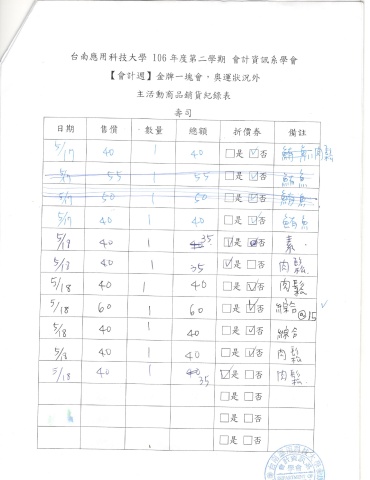 台南應用科技大學 106 年度第二學期 會計資訊系學會
【會計週】金牌一塊會,奧運狀況外
主活動商品銷貨紀錄表
壽司
日期 售價 數量 總額 折價券 備註
5/17 40 1 40 □是 ☑否 鮪魚/肉鬆
5/17 55 1 55 □是 ☑否 鮪魚
5/17 50 1 50 □是 ☑否 鮪魚
5/17 40 1 40 □是 ☑否 鮪魚
5/18 40 1 40 35 ☑是 否 素
5/18 40 1 35 ☑是 □否 肉鬆
5/18 40 1 40 □是 ☑否 肉鬆
5/18 60 1 60 □是 ☑否 綜合 @15
5/18 40 1 40 □是 ☑否 綜合
5/18 40 1 40 □是 ☑否 肉鬆
5/18 40 1 40 35 ☑是 □否 肉鬆
□是 □否
□是 □否
□是 □否